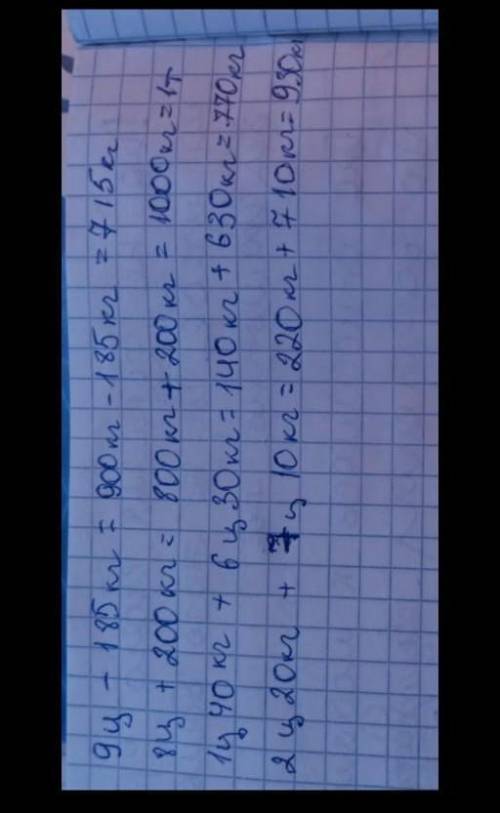 9ц - 185кг = 900кг - 185кг = 715кг
8ц + 200кг = 800кг + 200кг = 1000кг = 1т
1ц 40кг + 6ц 30кг = 140кг + 630кг = 770кг
2ц 20кг + 7ц 10кг = 220кг + 710кг = 930кг